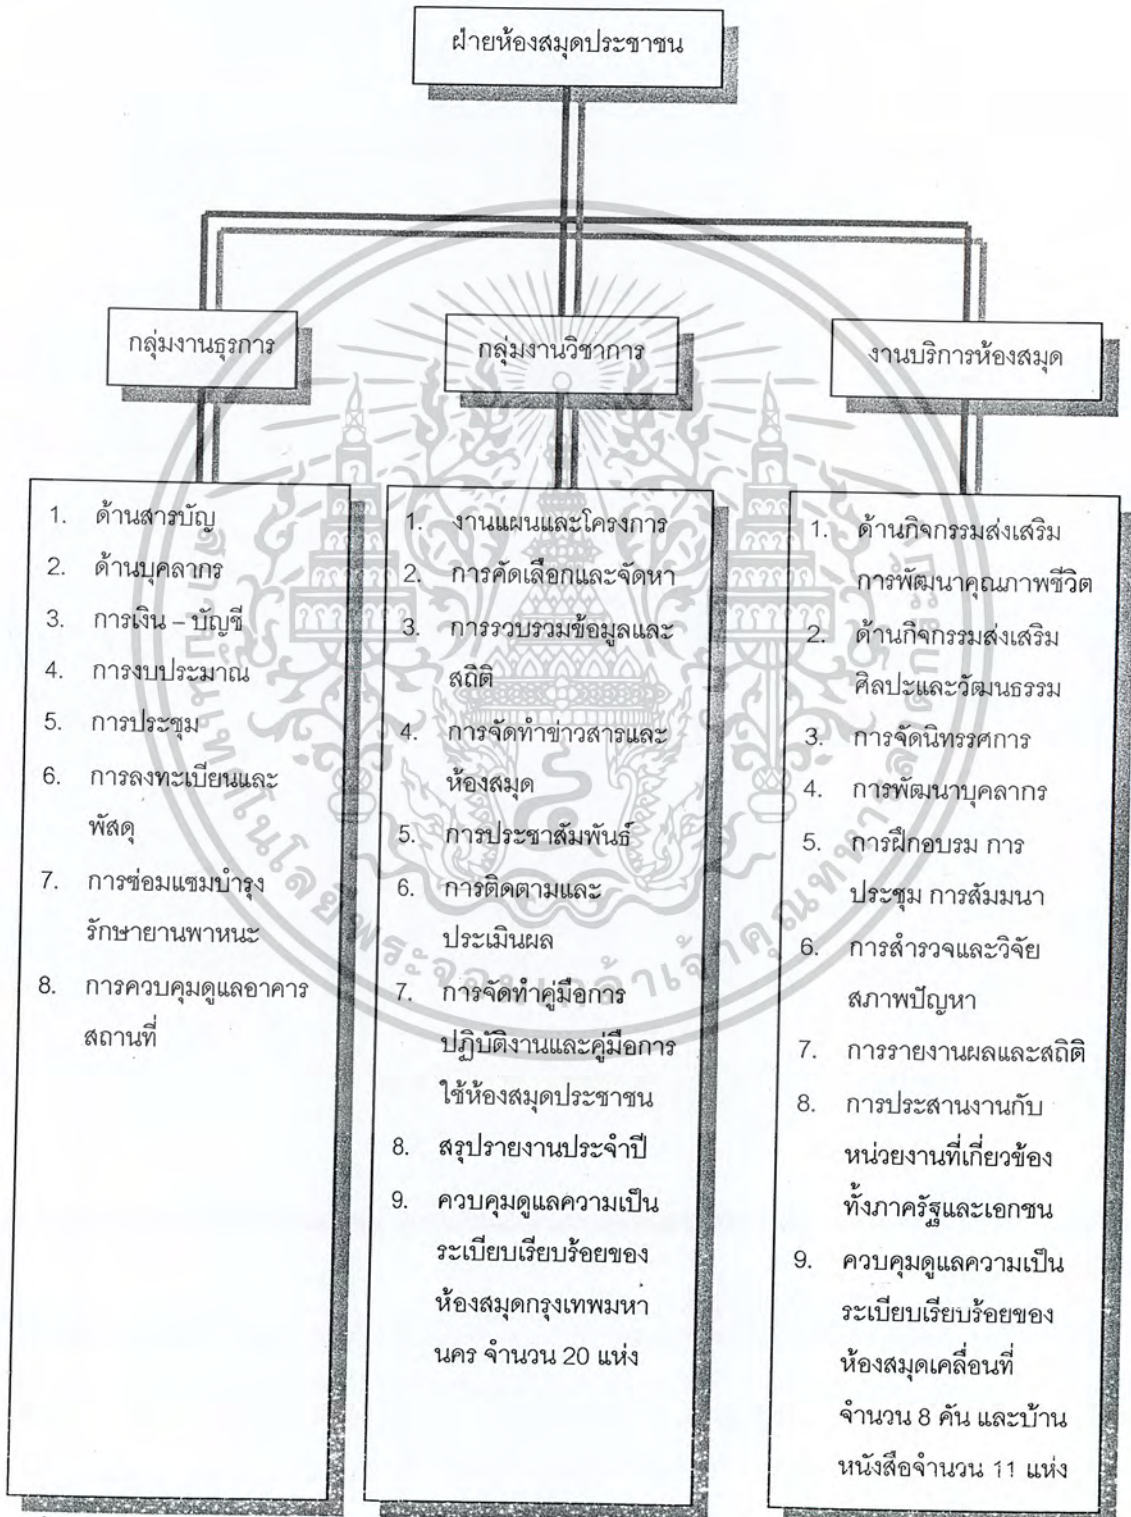 ฝ่ายห้องสมุดประชาชน
กลุ่มงานธุรการ
กลุ่มงานวิชาการ
งานบริการห้องสมุด
1. ด้านสารบัญ
2. ด้านบุคลากร
3. การเงิน – บัญชี
4. การงบประมาณ
5. การประชุม
6. การลงทะเบียนและ
พัสดุ
7. การซ่อมแซมบำรุง
รักษายานพาหนะ
8. การควบคุมดูแลอาคาร
สถานที่
1. งานแผนและโครงการ
2. การคัดเลือกและจัดหา
3. การรวบรวมข้อมูลและ
สถิติ
4. การจัดทำข่าวสารและ
ห้องสมุด
5. การประชาสัมพันธ์
6. การติดตามและ
ประเมินผล
7. การจัดทำคู่มือการ
ปฏิบัติงานและคู่มือการ
ใช้ห้องสมุดประชาชน
8. สรุปรายงานประจำปี
9. ควบคุมดูแลความเป็น
ระเบียบเรียบร้อยของ
ห้องสมุดกรุงเทพมหา
นคร จำนวน 20 แห่ง
1. ด้านกิจกรรมส่งเสริม
การพัฒนาคุณภาพชีวิต
2. ด้านกิจกรรมส่งเสริม
ศิลปะและวัฒนธรรม
3. การจัดนิทรรศการ
4. การพัฒนาบุคลากร
5. การฝึกอบรม การ
ประชุม การสัมมนา
6. การสำรวจและวิจัย
สภาพปัญหา
7. การรายงานผลและสถิติ
8. การประสานงานกับ
หน่วยงานที่เกี่ยวข้อง
ทั้งภาครัฐและเอกชน
9. ควบคุมดูแลความเป็น
ระเบียบเรียบร้อยของ
ห้องสมุดเคลื่อนที่
จำนวน 8 คัน และบ้าน
หนังสือจำนวน 11 แห่ง
สถาบันเทคโนโลยีพระจอมเกล้าเจ้าคุณทหารลาดกระบัง